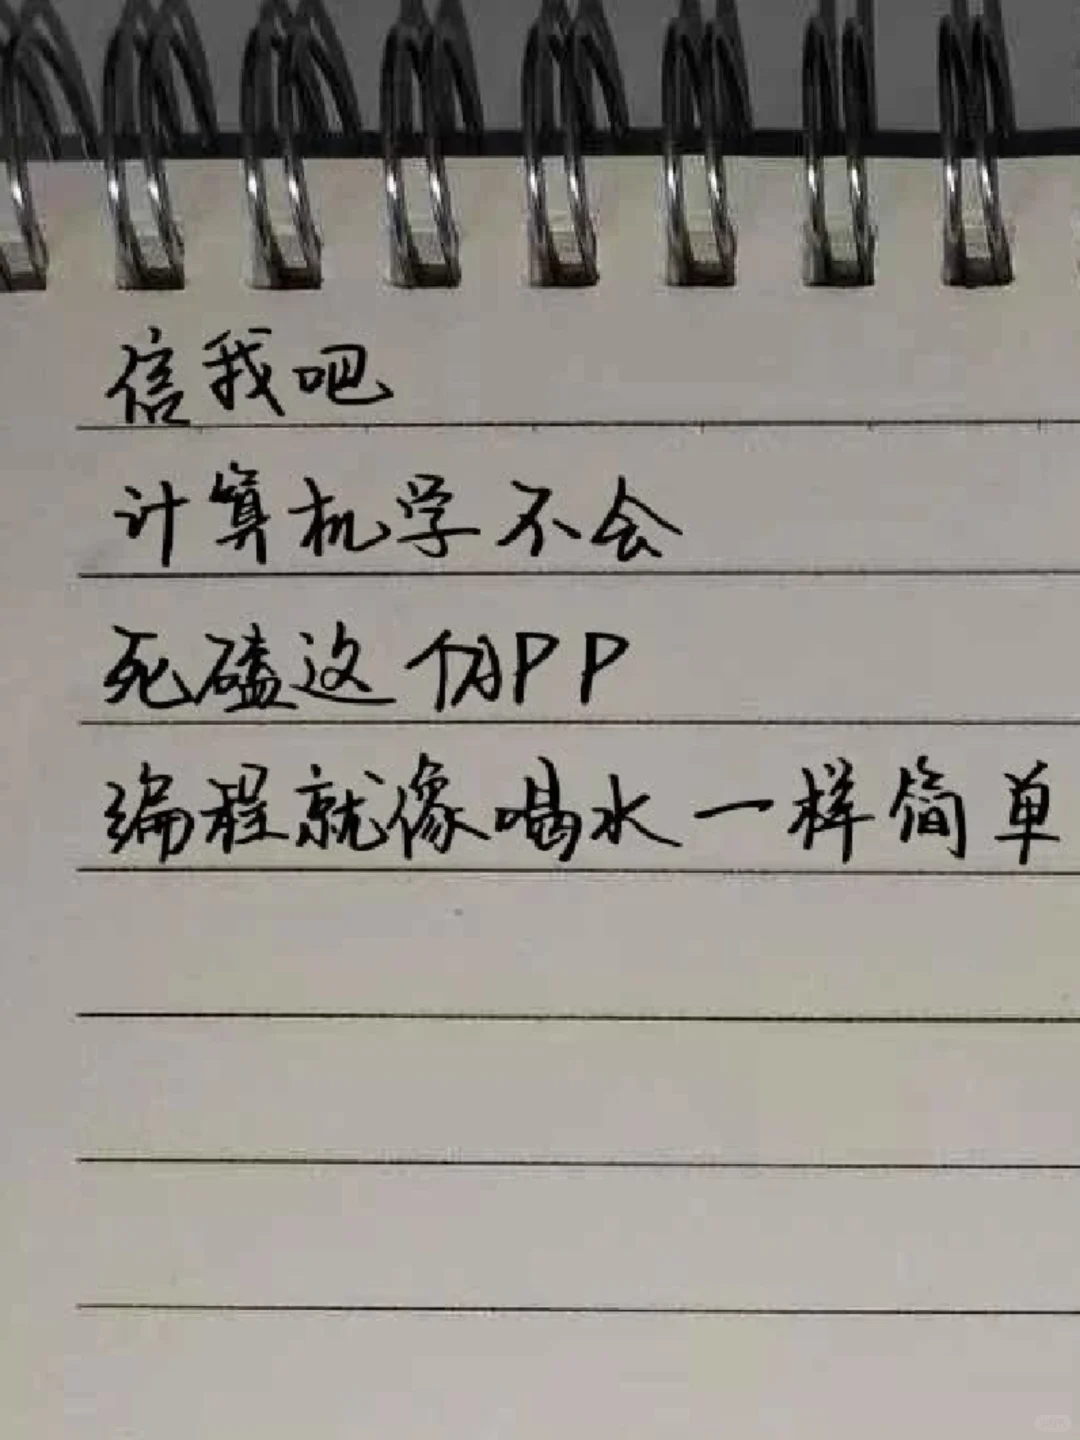 信我吧
计算机学不会
死磕这份PP
编程就像喝水一样简单